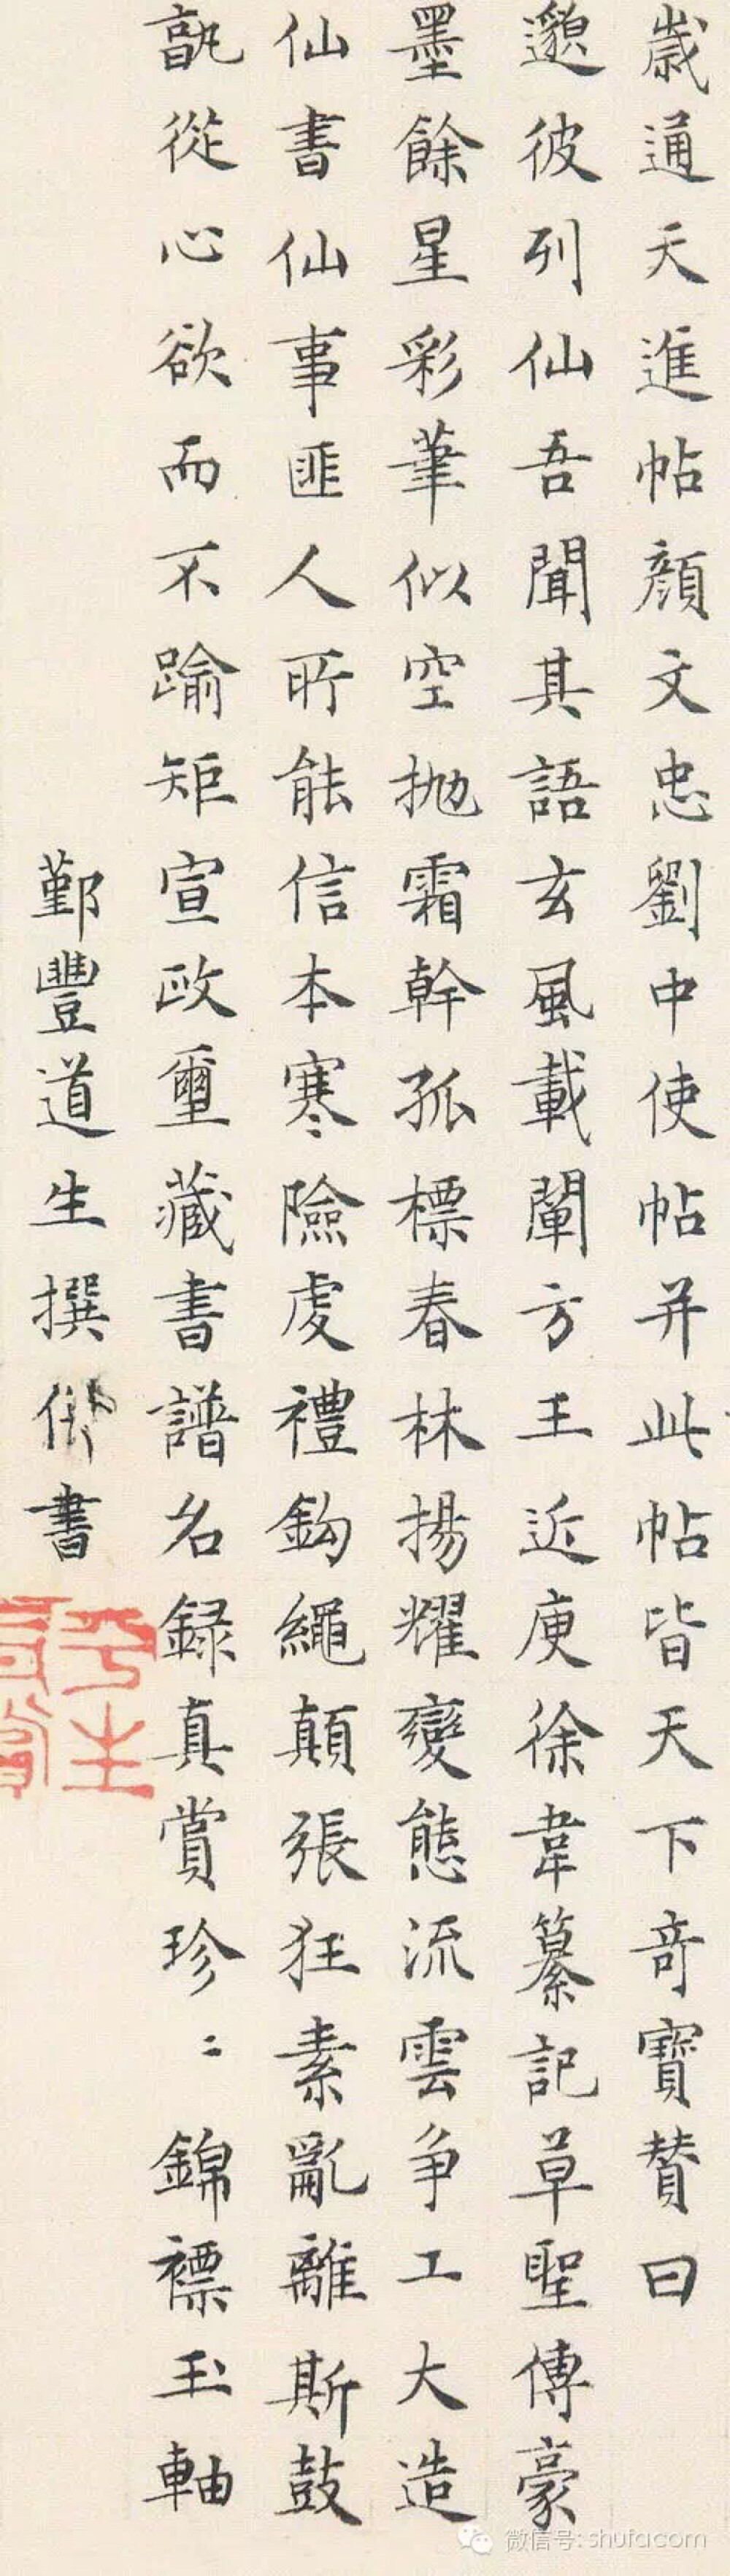 歲通天進帖顏文忠劉中使帖并此帖皆天下奇寶賛曰
邈彼列仙吾聞其語玄風載闡方王近庾徐韋纂記草聖傳豪
墨餘星彩筆似空拋霜幹孤標春林揚耀變態流雲争工大造
仙書仙事匪人所能信本寒險虔禮鈎繩顛張狂素亂離斯鼓
孰從心欲而不踰矩宣政璽藏書譜名録真賞珍〻錦褾玉軸
鄞豐道生撰併書
平生
微信号: shufacom